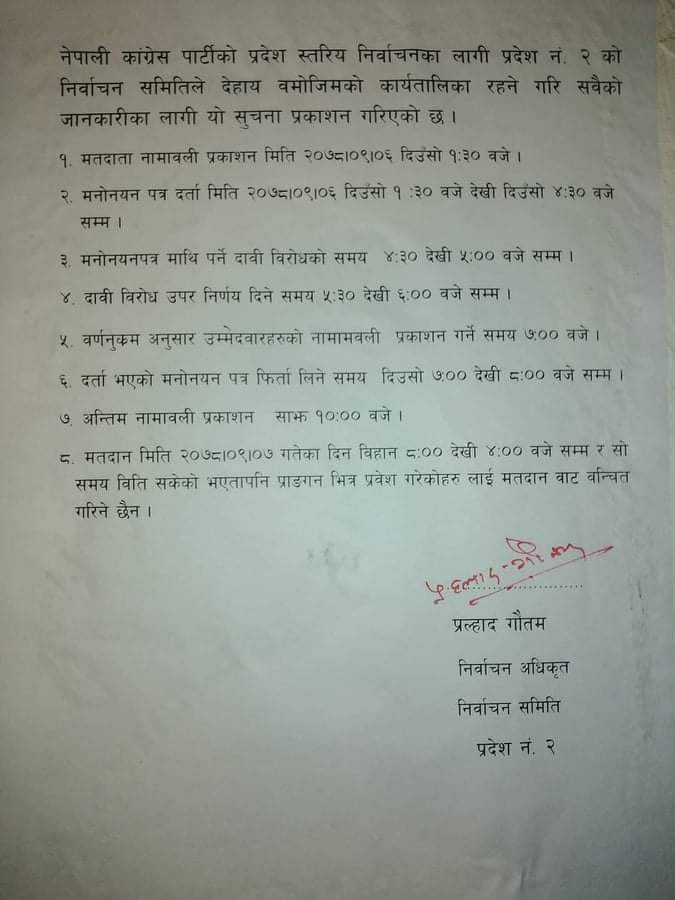 नेपाली कांग्रेस पार्टीको प्रदेश स्तरिय निर्वाचनका लागी प्रदेश नं. २ को
निर्वाचन समितिले देहाय वमोजिमको कार्यतालिका रहने गरि सवैको
जानकारीका लागी यो सुचना प्रकाशन गरिएको छ ।
१. मतदाता नामावली प्रकाशन मिति २०७८।०९।०६ दिउँसो १:३० वजे ।
२. मनोनयन पत्र दर्ता मिति २०७८।०९।०६ दिउँसो १ :३० वजे देखी दिउँसो ४:३० वजे
सम्म ।
३. मनोनयनपत्र माथि पर्ने दावी विरोधको समय ४:३० देखी ५:०० वजे सम्म ।
४. दावी विरोध उपर निर्णय दिने समय ५:३० देखी ६:०० वजे सम्म ।
५. वर्णनुकम अनुसार उम्मेदवारहरुको नामामवली प्रकाशन गर्ने समय ७:०० वजे ।
६. दर्ता भएको मनोनयन पत्र फिर्ता लिने समय दिउसो ७:०० देखी ८:०० वजे सम्म ।
७. अन्तिम नामावली प्रकाशन साझ १०:०० वजे ।
८. मतदान मिति २०७८।०९।०७ गतेका दिन विहान ८:०० देखी ४:०० वजे सम्म र सो
समय विति सकेको भएतापनि प्राङगन भित्र प्रवेश गरेकोहरु लाई मतदान वाट वन्चित
गरिने छैन ।
प्रल्हाद गौतम
निर्वाचन अधिकृत
निर्वाचन समिति
प्रदेश नं. २